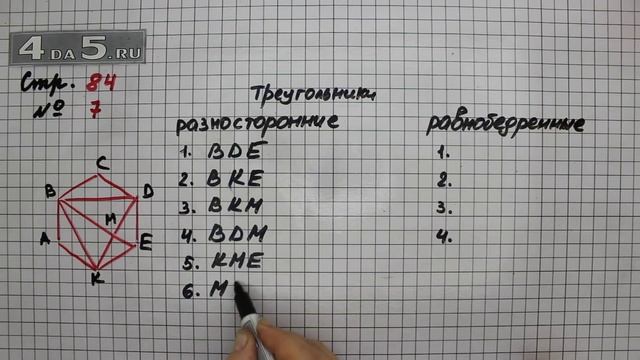 4DA5.RU
Стр. 84
№ 7
Треугольники
разносторонние
1. BDE
2. BKE
3. BKM
4. BDM
5. KME
6. M
равнобедренные
1.
2.
3.
4.
C
B
D
M
A
E
K